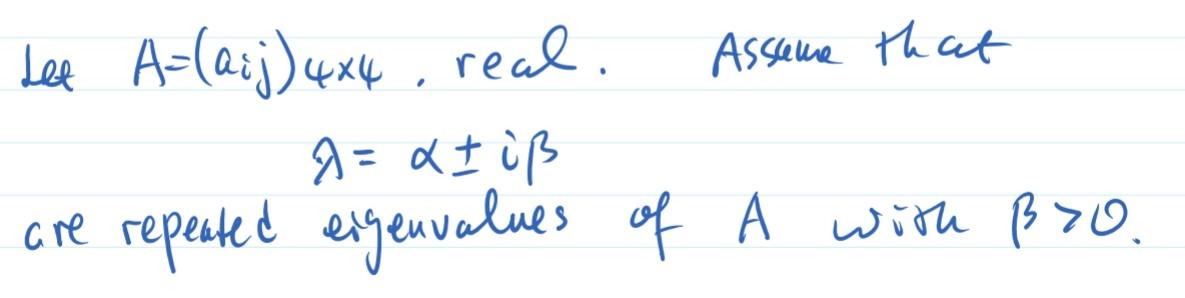 Let A=(aij)4×4, real. Assume that
λ= α ± iβ
are repeated eigenvalues of A with β>0.